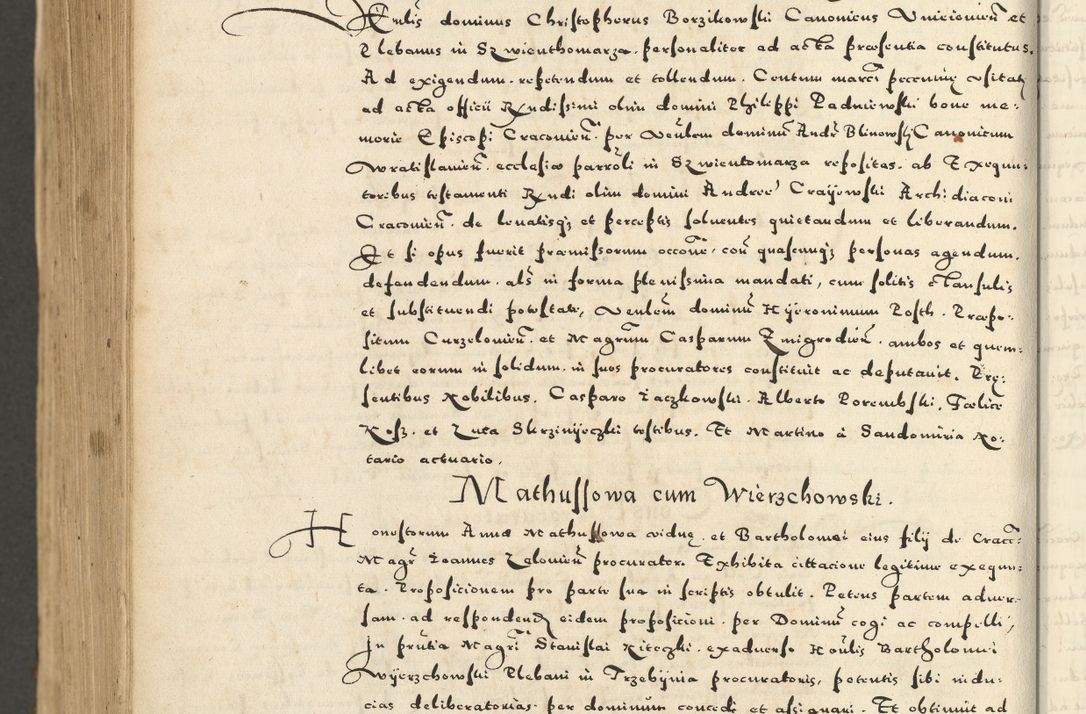 Venlis dominus Christopherus Borzikowski Canonicus Vnieiouien et
Plebanus in Szwienthomarza personaliter ad acta præsentia constitutus.
Ad exigendum repetendum et tollendum. Centum marci peccunię vsitatę
ad acta officii Rndissimi olim domini Philippi Padniewski bone me-
morie Episcopi Cracouien. per Venlem dominum Andr Blinowski Canonicum
Wratislauien. ecclesiæ parroli in Szwientomarza repositas. ab Exequu-
toribus testamenti Rndi olim domini Andreæ Crayewski Archidiaconi
Cracouien. de leuatisqz et perceptis soluentes quietandum et liberandum.
Et si opus fuerit præmissorum occone. cou quascunqz personas agendum.
defendendum. als in forma plenissima mandati, cum solitis clausulis
et substituendi potestate, Venlem dominum Hyeronimum Rosth. Præpo-
situm Curzelouien. et Magrum Casparum Zmigrodien. ambos et quem-
libet eorum in solidum. in suos procuratores constituit ac deputauit. Prę-
sentibus Nobilibus. Casparo Laczkowski. Alberto Porembski. Fælice
Kosz. et Luca Skrzinyeczki testibus. Et Martino à Sandomiria No-
tario actuario.
Mathussowa cum Wierzchowski.
Honestorum Annæ Mathussowa viduę. et Bartholomei eius filij de Cracc
Magr Ioannes Zelouien procurator. Exhibita cittacione legitime exequu-
ta. Proposicionem pro parte sua in scriptis obtulit. Petens partem aduer-
sam. ad respondend eidem proposicioni. per Dominum cogi ac compelli,
In pruntia Magri Stanislai Kiteczki. exaduerso Honlis Bartholomei
Wyerzchowski Plebani in Trzebynia procuratoris, petentis sibi indu-
cias deliberatorias. per dominum concedi et assignari. Et obtinuit ad